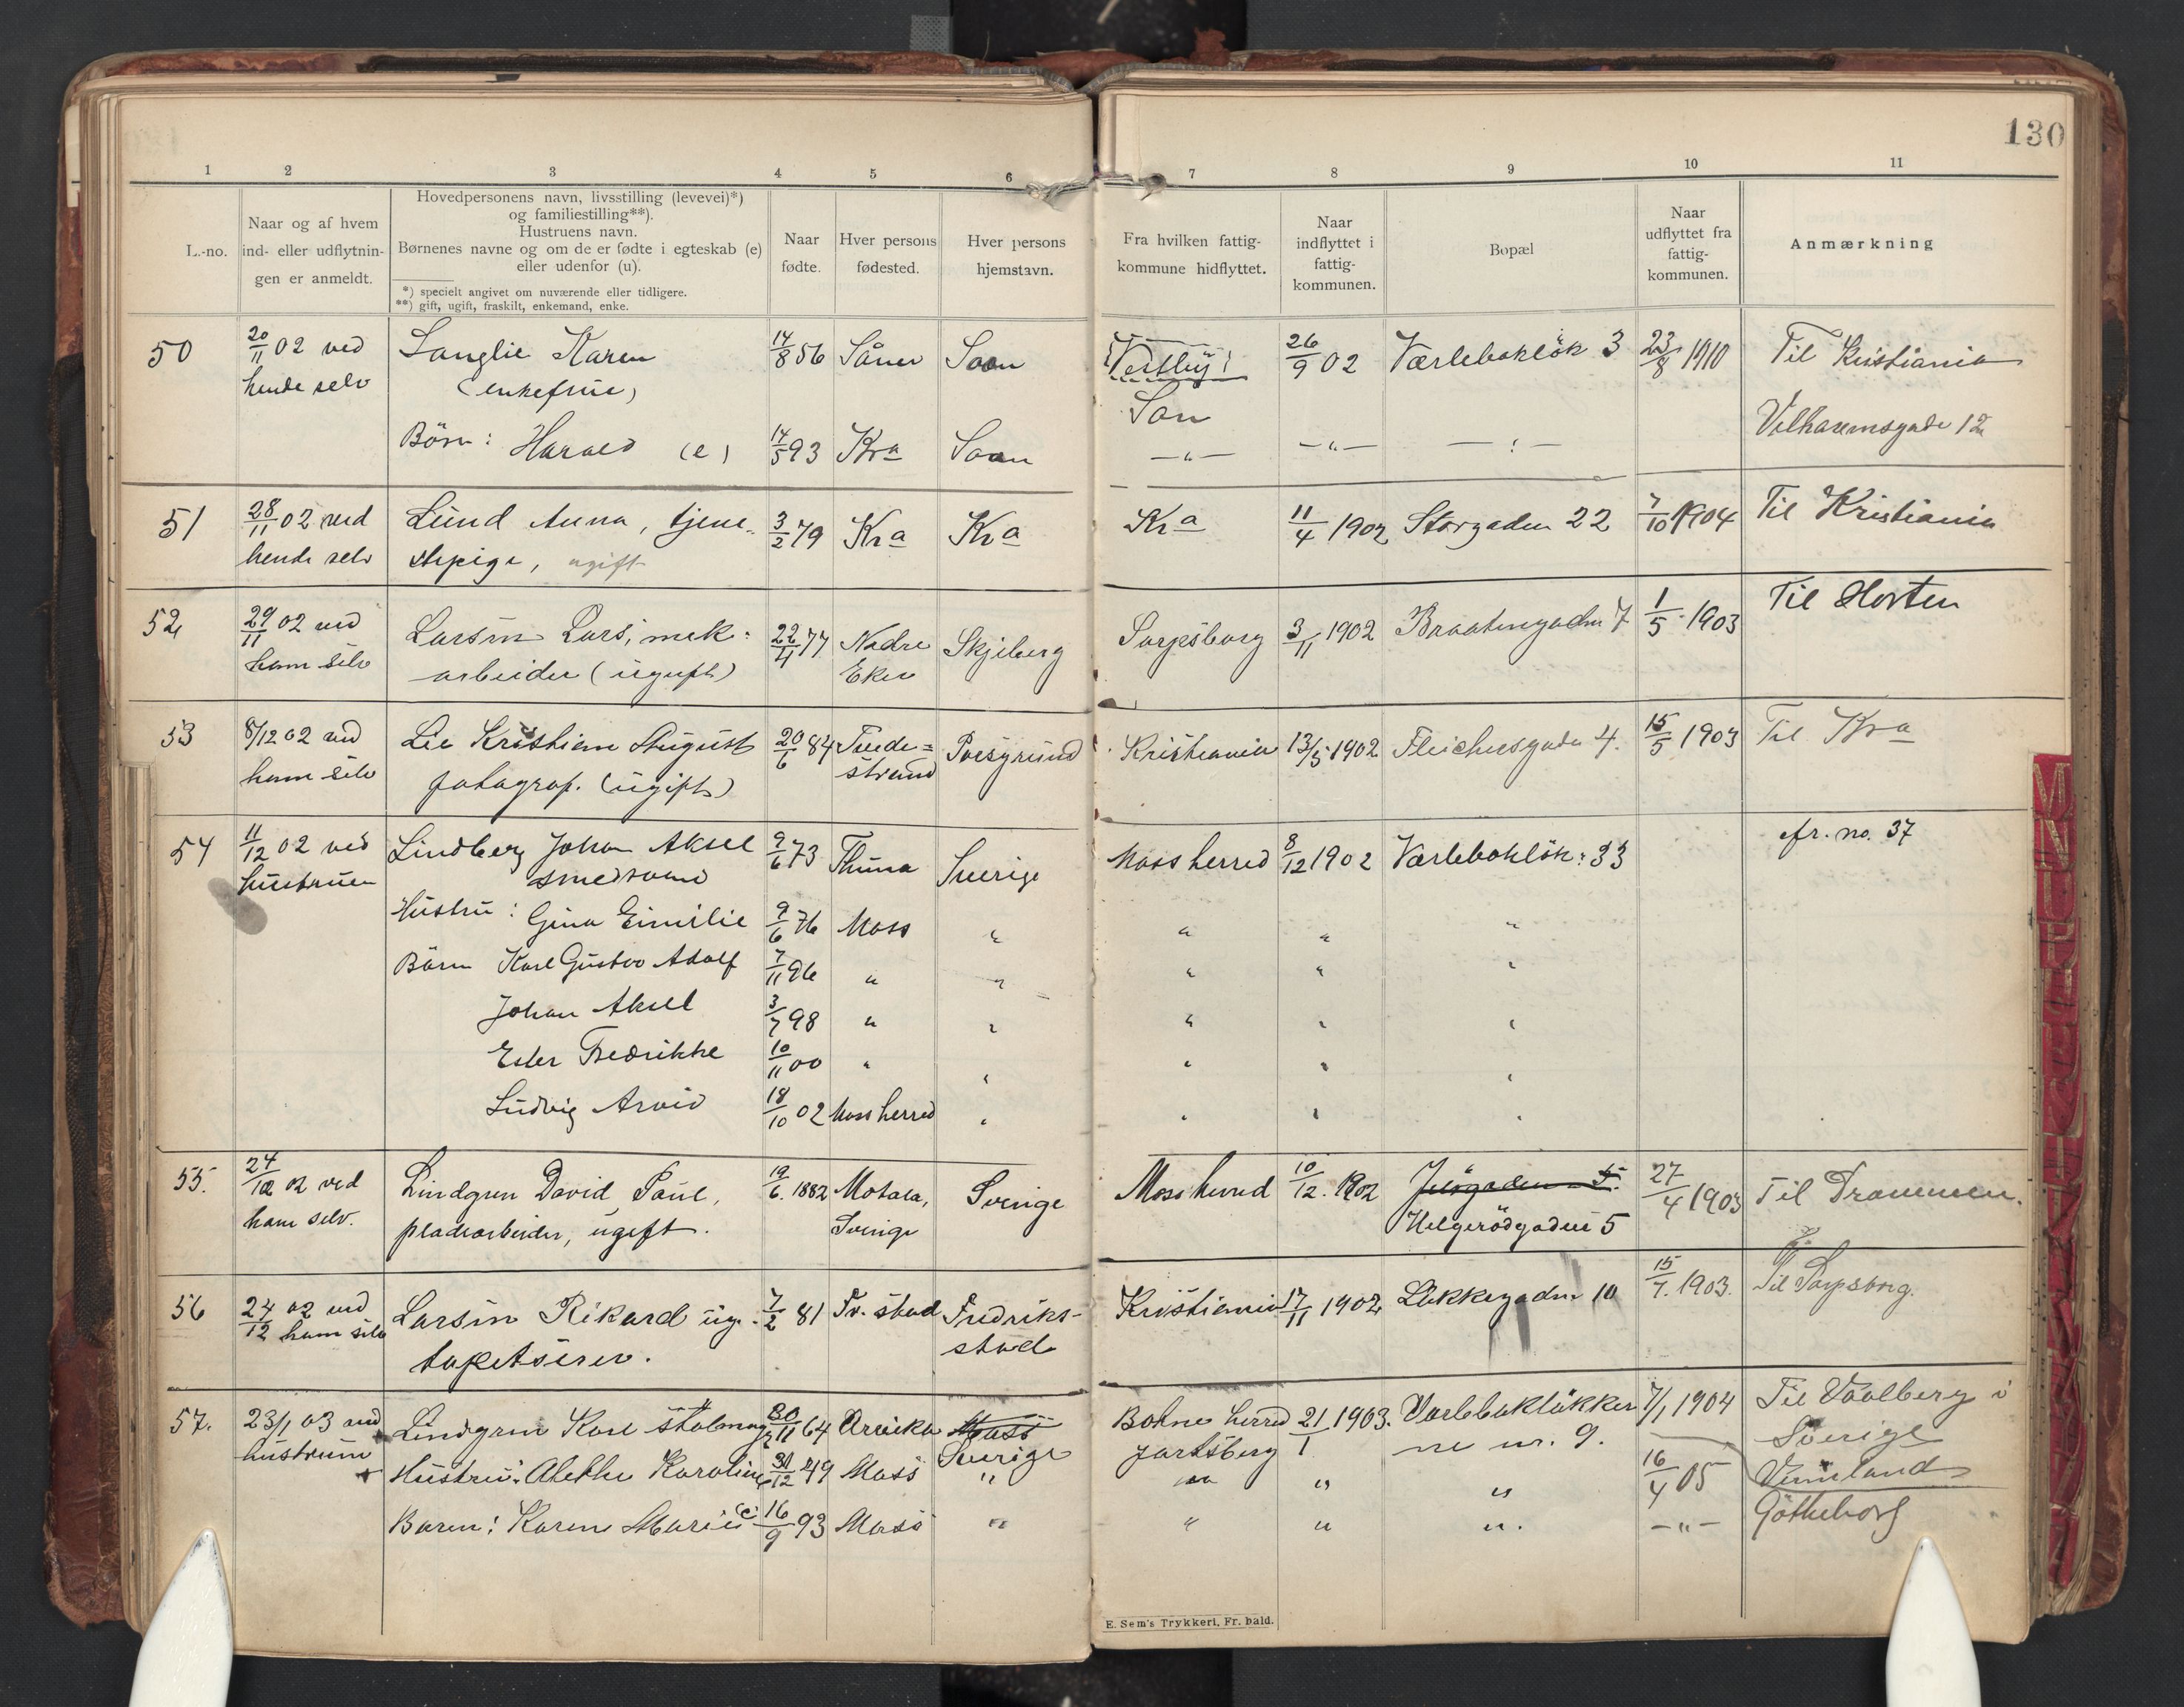 130
1 2 3 4 5 6 7 8 9 10 11
L.-no.
Naar og af hvem
ind- eller udflytnin-
gen er anmeldt.
Hovedpersonens navn, livsstilling (levevei)*)
og familiestilling**).
Hustruens navn.
Børnenes navne og om de er fødte i egteskab (e)
eller udenfor (u).
*) specielt angivet om nuværende eller tidligere.
**) gift, ugift, fraskilt, enkemand, enke.
Naar
fødte.
Hver persons
fødested.
Hver persons
hjemstavn.
Fra hvilken fattig-
kommune hidflyttet.
Naar
indflyttet i
fattig-
kommunen.
Bopæl
Naar
udflyttet fra
fattig-
kommunen.
Anmærkning
50 20/11 02 ved Langlie Karen 14/8 56 Såner Soon Vestby 26/9 02 Værlebakløk 3 23/8 1910 Til Kristiania
hende selv (enkefrue) Son
Börn: Harald (e) 14/5 93 Kra Soon —"— —"— —:— 12
51 28/11 02 ved Lund Anna, tjene- 3/2 79 Kra Kra Kra 11/4 1902 Storgaden 22 7/10 1904 Til Kristiania
hende selv stepige, ugift
52 29/11 02 ved Larsen Lars, mek: 22/4 77 Nedre Skjeberg Sarpsborg 3/11 1902 Braatengaden 7 1/5 1903 Til Horten
ham selv arbeider (ugift) Eker
53 8/12 02 ved Lie Kristian August 20/6 84 Tvede= Porsgrund Kristiania 13/5 1902 Fleichersgade 4. 15/5 1903 Til Kra
ham selv fotograf. (ugift) strand
54 11/12 02 ved Lindberg Johan Aksel 9/6 73 Thuna Sverige Moss herred 8/12 1902 Værlebakløk: 33 cfr. no. 37
hustruen smedsvend
Hustru: Gina Emilie 9/6 76 Moss " " " "
Börn Karl Gustav Adolf 7/11 96 " " " " "
Johan Aksel 3/7 98 " " " " "
Ester Fredrikke 10/11 00 " " " " "
Ludvig Arvid 18/10 02 Moss herred " " " "
55. 24/12 02 ved Lindgren David Paul, 19/6. 1882 Motala, Sverige Moss herred 10/12. 1902 Jelögaden 5. 27/4 1903 Til Drammen.
ham selv. pladearbeider, ugift. Sverige Helgerödgaden 5
56 24/12 02 ved Larsen Rikard ug. 7/2 81 Fr. stad Fredriks- Kristiania 17/11 1902 Løkkegaden 10 15/7. 1903. Til Sarpsborg.
ham selv tapetserer. stad
57. 23/1 03 ved Lindgren Karl 30/11 64 Arvika Moss Botne herred 21/1 1903. Værlebakløkker 7/1 1904 Til Vaalberg i
hustruen Sverige Jarlsberg ne nr. 9. Sverige
Hustru: Alethe Karoline 31/12 49 Moss " " " " 16/4 05 Vermland
Barn: Karen Marie (e) 16/9 93 Moss " " " " —"— Götheborg
E. Sem's Trykkeri, Fr. hald.